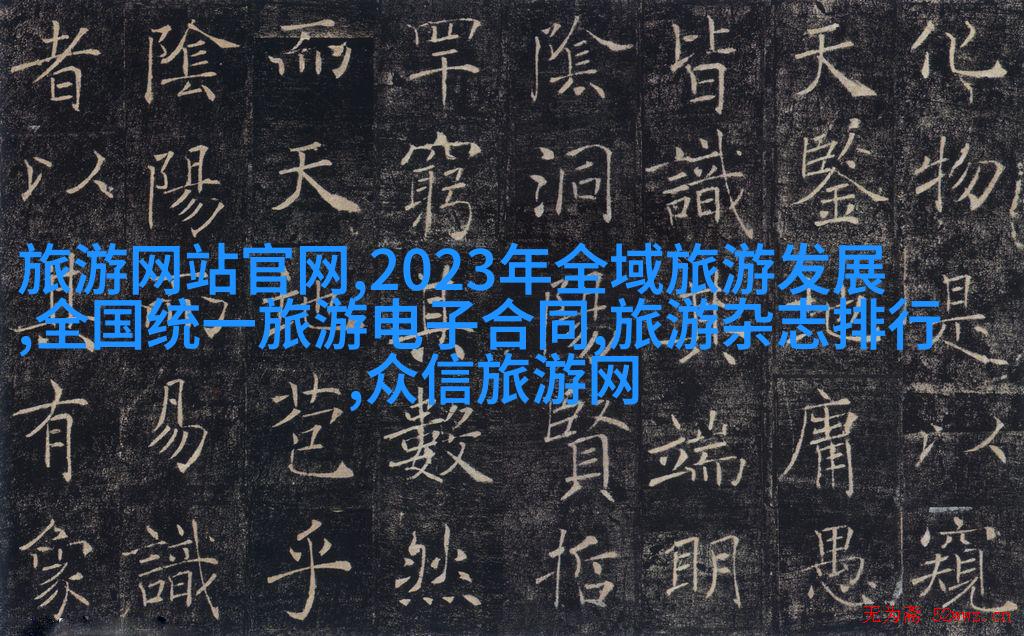 旅游网站官网,2023年全域旅游发展
,全国统一旅游电子合同,旅游杂志排行
,众信旅游网
化物是以窺
天鑒庸愚
皆識其端明
陰洞賢哲
罕窮其數然
而天苞乎
陰陽易識
者以其有象
无为斋 52wwz.cn